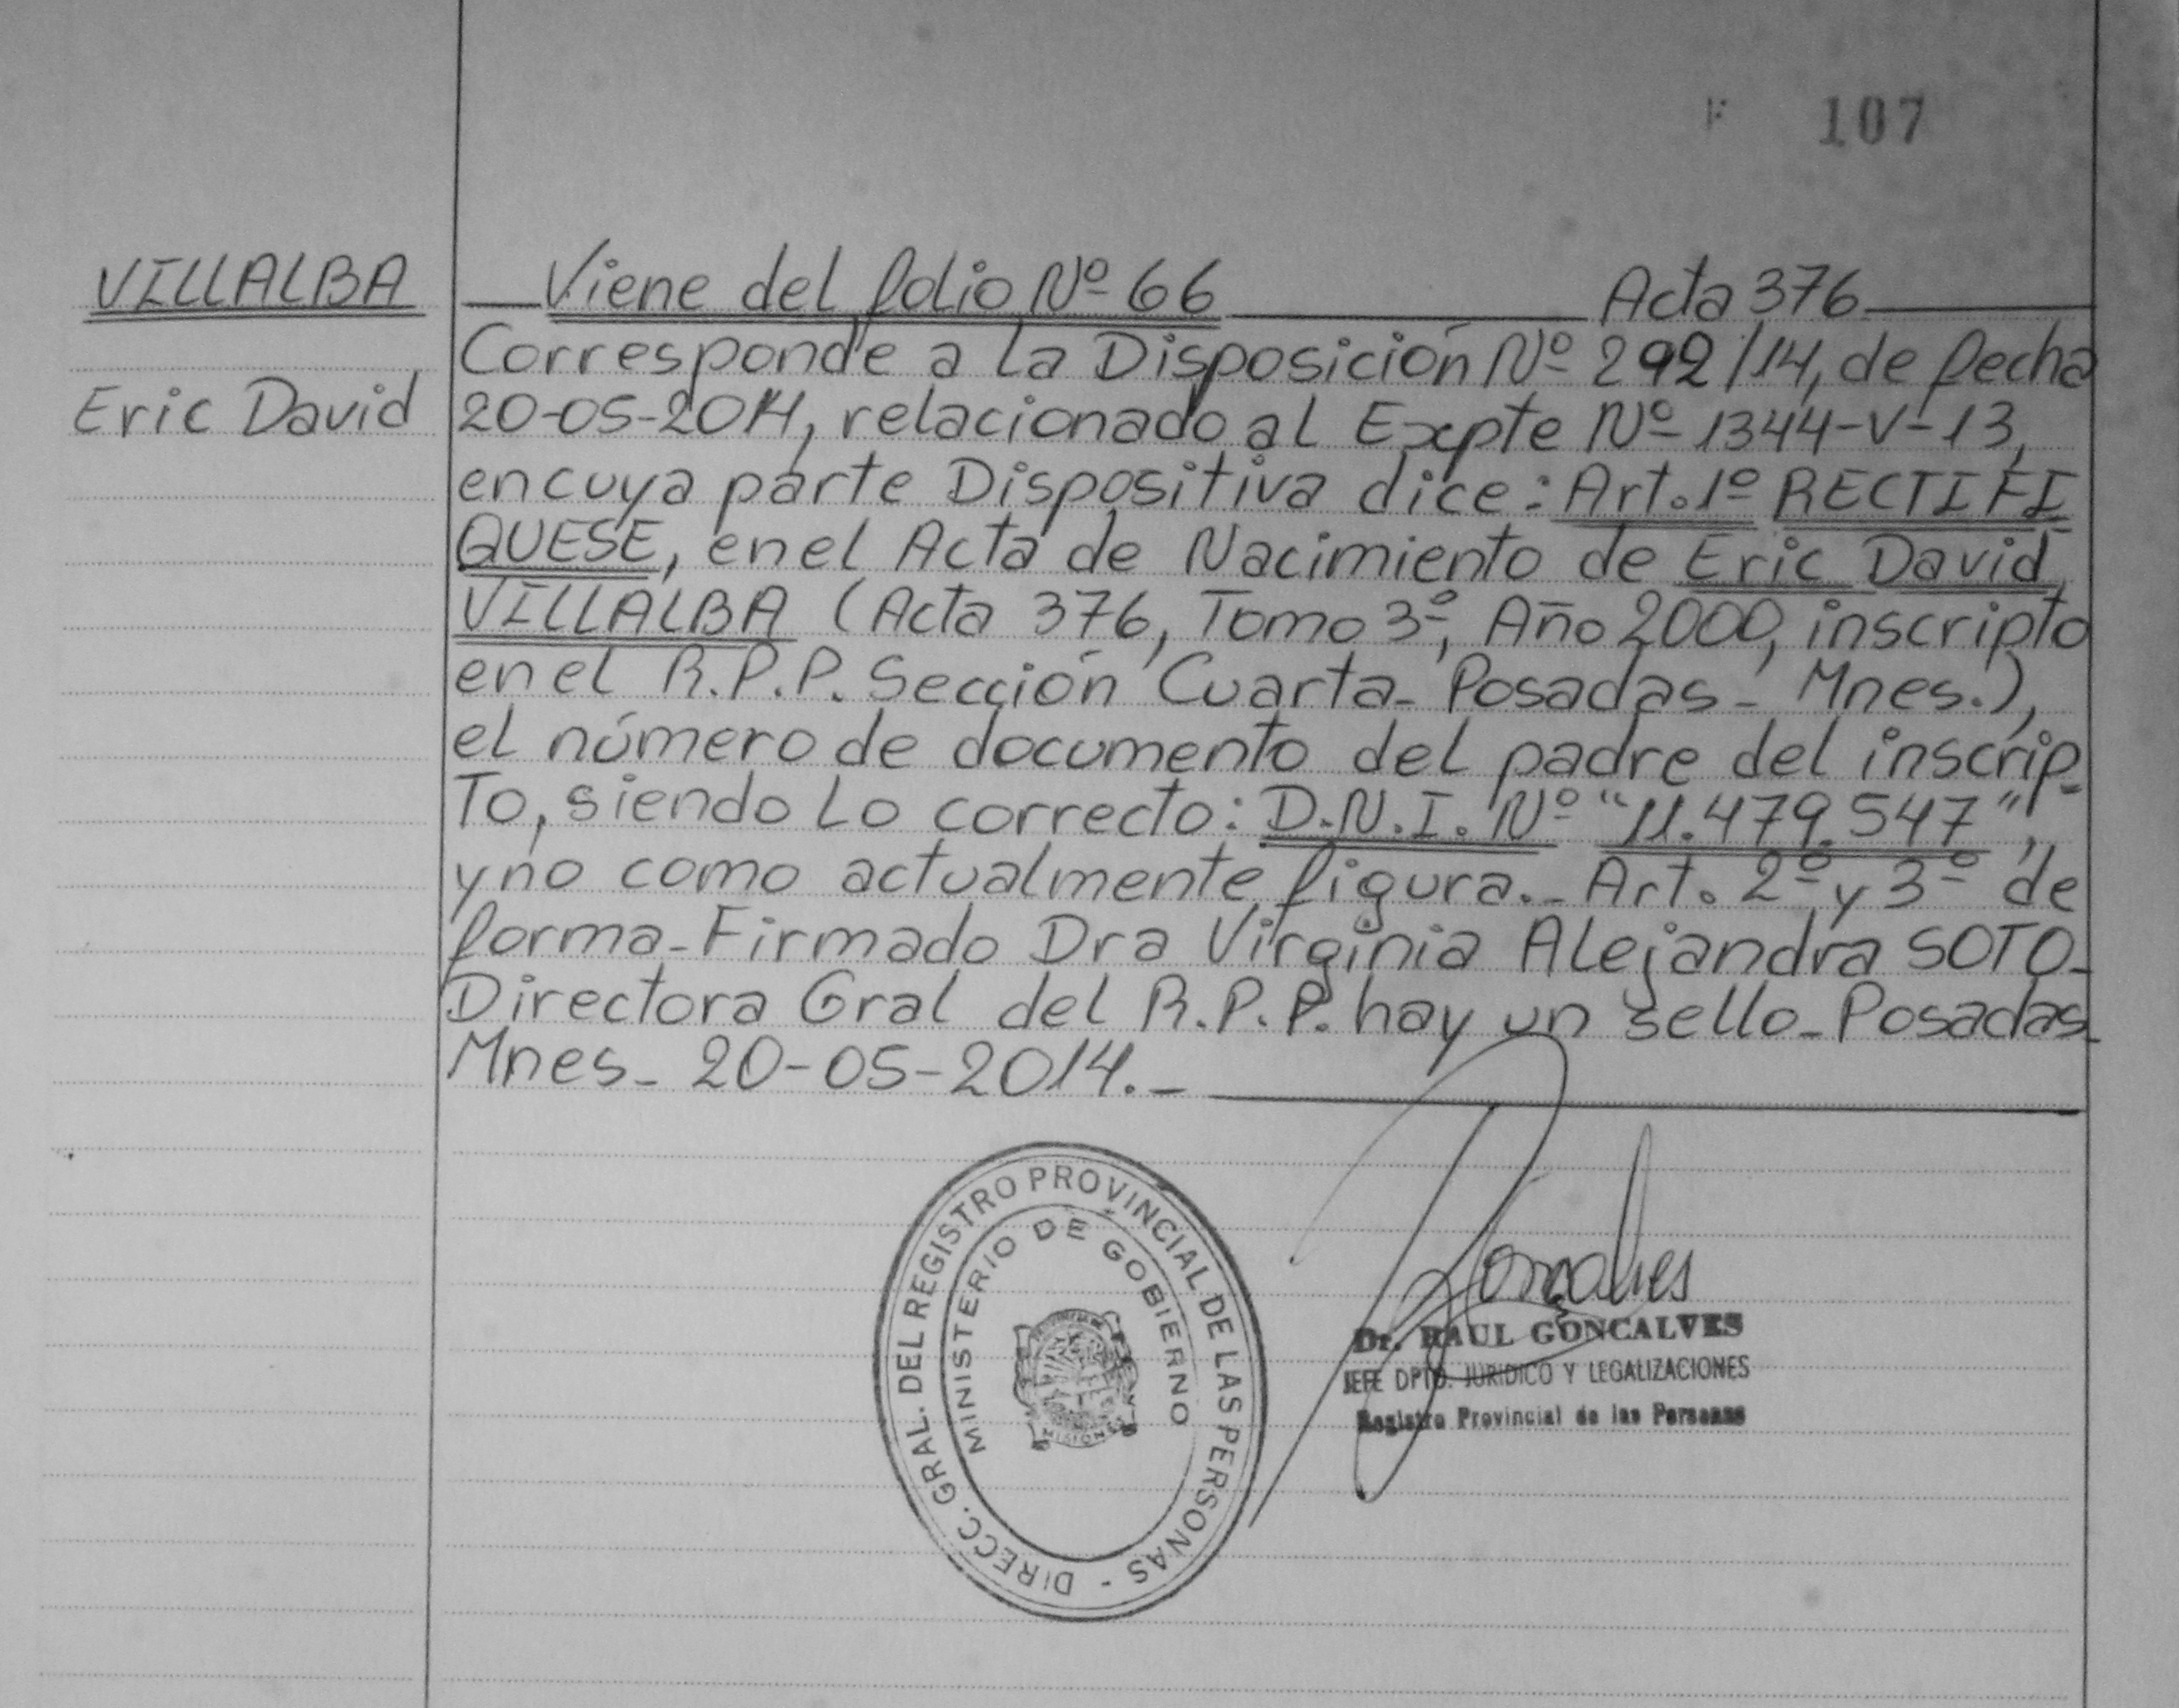 F 107
VILLALBA
Eric David
Viene del folio Nº 66 Acta 376
Corresponde a la Disposición Nº 292/14, de fecha
20-05-2014, relacionado al Expte Nº 1344-V-13,
en cuya parte Dispositiva dice: Art. 1º RECTIFI
QUESE, en el Acta de Nacimiento de Eric David
VILLALBA (Acta 376, Tomo 3º, Año 2000, inscripto
en el R.P.P. Sección Cuarta - Posadas - Mnes.),
el número de documento del padre del inscrip-
to, siendo lo correcto: D.N.I. Nº "11.479.547",
y no como actualmente figura.- Art. 2º y 3º de
forma - Firmado Dra Virginia Alejandra SOTO -
Directora Gral del R.P.P. hay un sello - Posadas -
Mnes - 20-05-2014.-
DIRECC. GRAL. DEL REGISTRO PROVINCIAL DE LAS PERSONAS -
MINISTERIO DE GOBIERNO
MISIONES
Goncalves
Dr. RAUL GONCALVES
JEFE DPTO. JURIDICO Y LEGALIZACIONES
Registro Provincial de las Personas